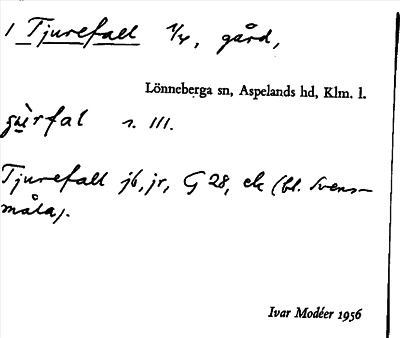 1 Tjurefall 1/4, gård,
Lönneberga sn, Aspelands hd, Klm. l.
s. 111.
Tjurefall jb, jr, G 28, ek (bl. Svens-
måla).
Ivar Modéer 1956